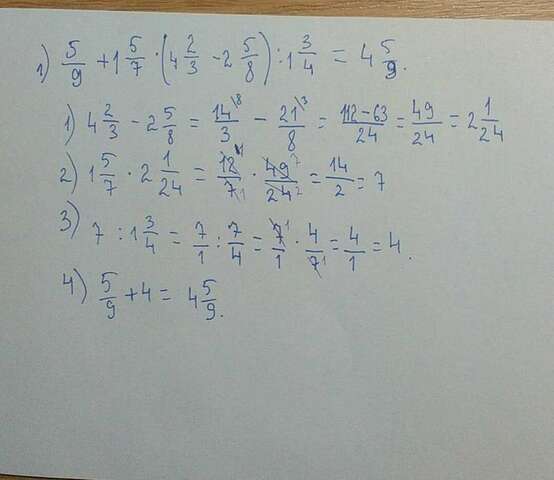 1) 5/9 + 1 5/7 · (4 2/3 - 2 5/8) : 1 3/4 = 4 5/9.
1) 4 2/3 - 2 5/8 = 14\8/3 - 21\3/8 = 112-63/24 = 49/24 = 2 1/24
2) 1 5/7 · 2 1/24 = 12/7 1 · 49 7/24 2 = 14/2 = 7
3) 7 : 1 3/4 = 7/1 : 7/4 = 7 1/1 · 4/7 1 = 4/1 = 4.
4) 5/9 + 4 = 4 5/9.